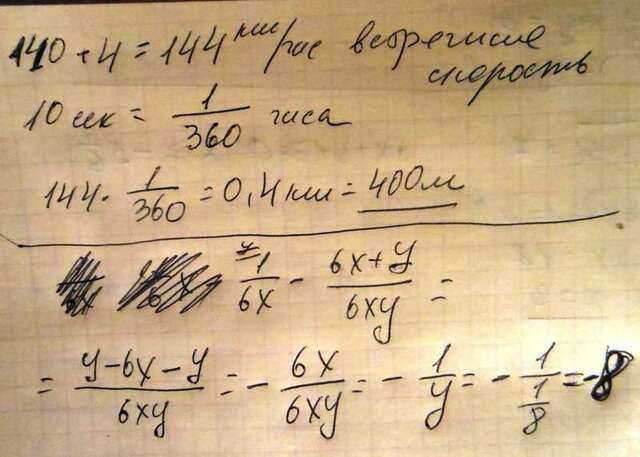 140 + 4 = 144 км/час встречная
скорость
10 сек = 1/360 часа
144 · 1/360 = 0,4 км = 400м
1/6x - (6x+y)/6xy =
= (y-6x-y)/6xy = - 6x/6xy = - 1/y = - 1/(1/8) = -8